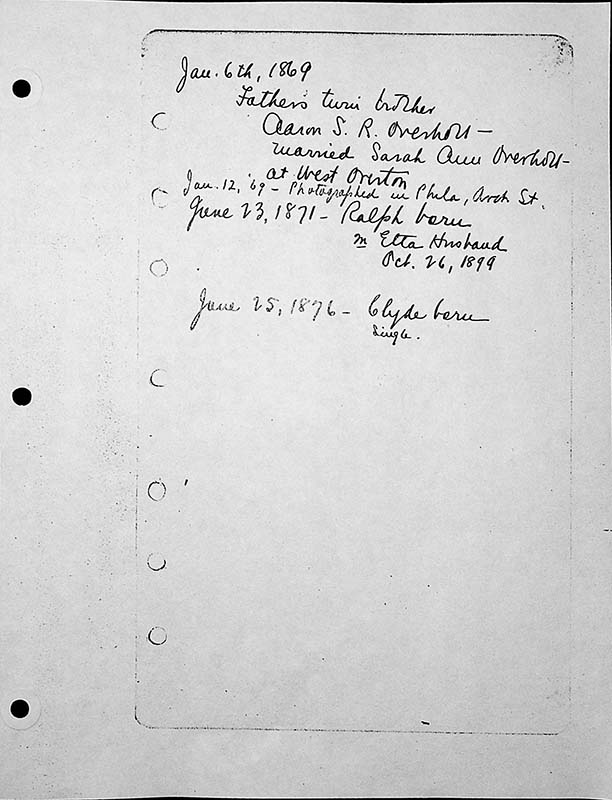 Jan. 6th, 1869
Father's twin brother
Aaron S. R. Overholt —
married Sarah Ann Overholt —
at West Overton
Jan. 12, '69 — Photographed in Phila, Arch St.
June 23, 1871 — Ralph born
m Etta Husband
Oct. 26, 1899
June 25, 1876 — Clyde born
Single.